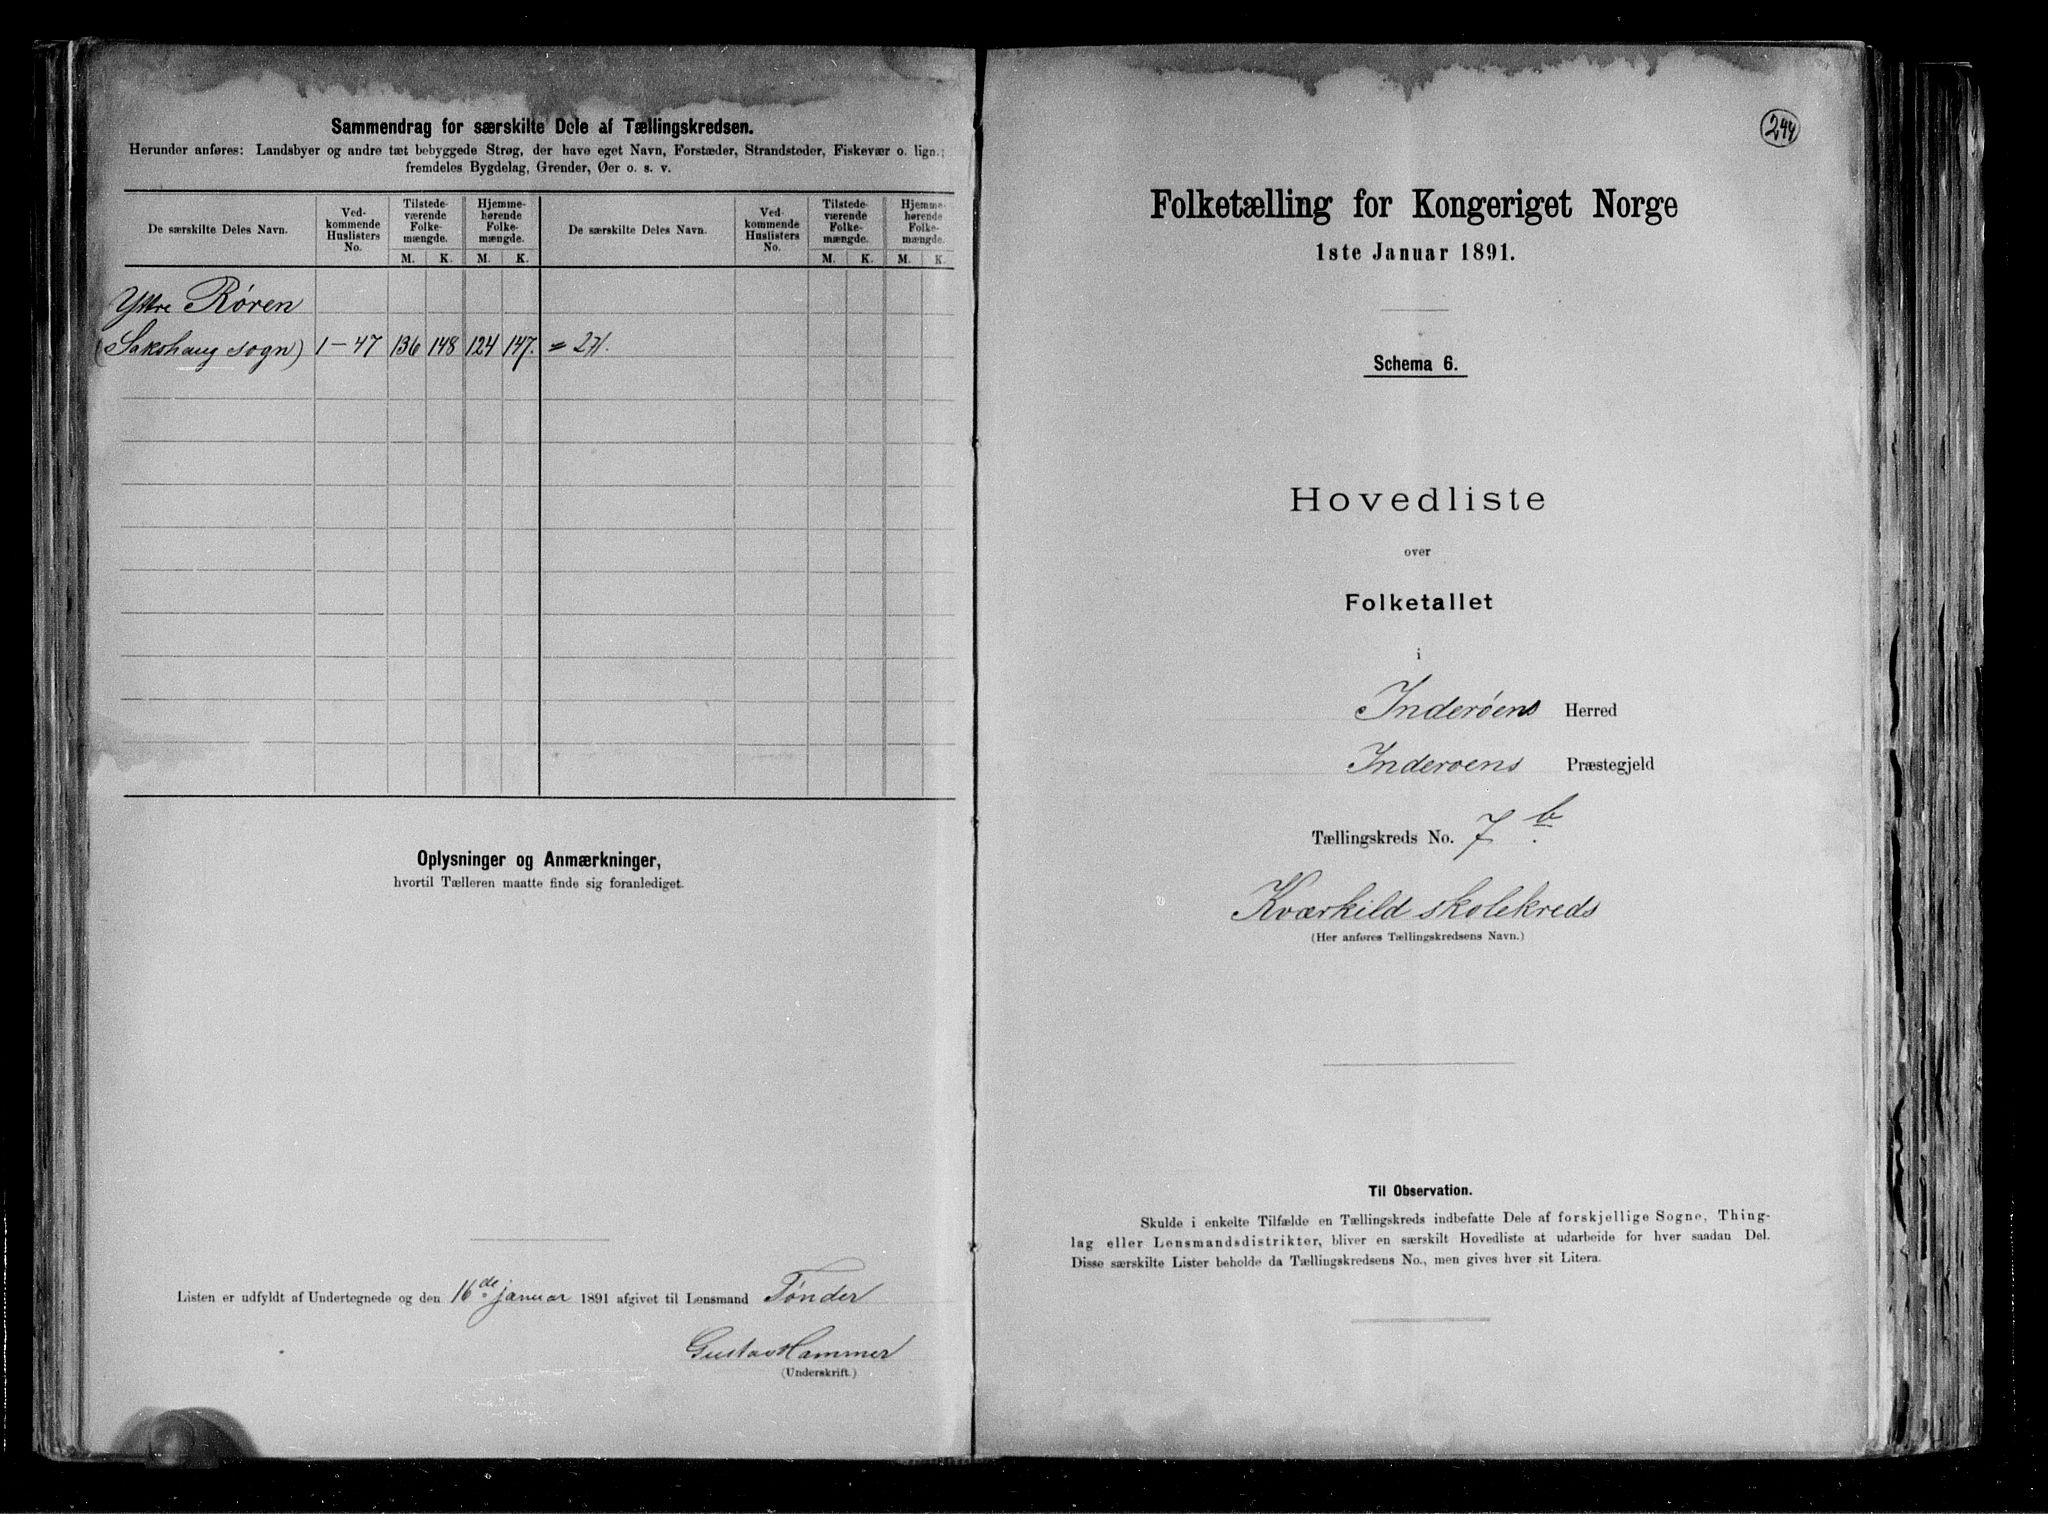 Sammendrag for særskilte Dele af Tællingskredsen.
Herunder anføres: Landsbyer og andre tæt bebyggede Strøg, der have eget Navn, Forstæder, Strandsteder, Fiskevær o. lign.;
fremdeles Bygdelag, Grender, Øer o. s. v.
De særskilte Deles Navn. Vedkommende Huslisters No. Tilstedeværende Folkemængde. Hjemmehørende Folkemængde. De særskilte Deles Navn. Vedkommende Huslisters No. Tilstedeværende Folkemængde. Hjemmehørende Folkemængde.
M. K. M. K. M. K. M. K.
Yttre Røren
(Sakshaug sogn) 1-47 136 148 124 147. = 271.
Oplysninger og Anmærkninger,
hvortil Tælleren maatte finde sig foranlediget.
Listen er udfyldt af Undertegnede og den 16de januar 1891 afgivet til Lensmand Tønder
Gustav Hammer
(Underskrift.)
244
Folketælling for Kongeriget Norge
1ste Januar 1891.
Schema 6.
Hovedliste
over
Folketallet
i
Inderøens Herred
Inderøens Præstegjeld
Tællingskreds No. 7 b.
Kværkild skolekreds
(Her anføres Tællingskredsens Navn.)
Til Observation.
Skulde i enkelte Tilfælde en Tællingskreds indbefatte Dele af forskjellige Sogne, Thing-
lag eller Lensmandsdistrikter, bliver en særskilt Hovedliste at udarbeide for hver saadan Del.
Disse særskilte Lister beholde da Tællingskredsens No., men gives hver sit Litera.